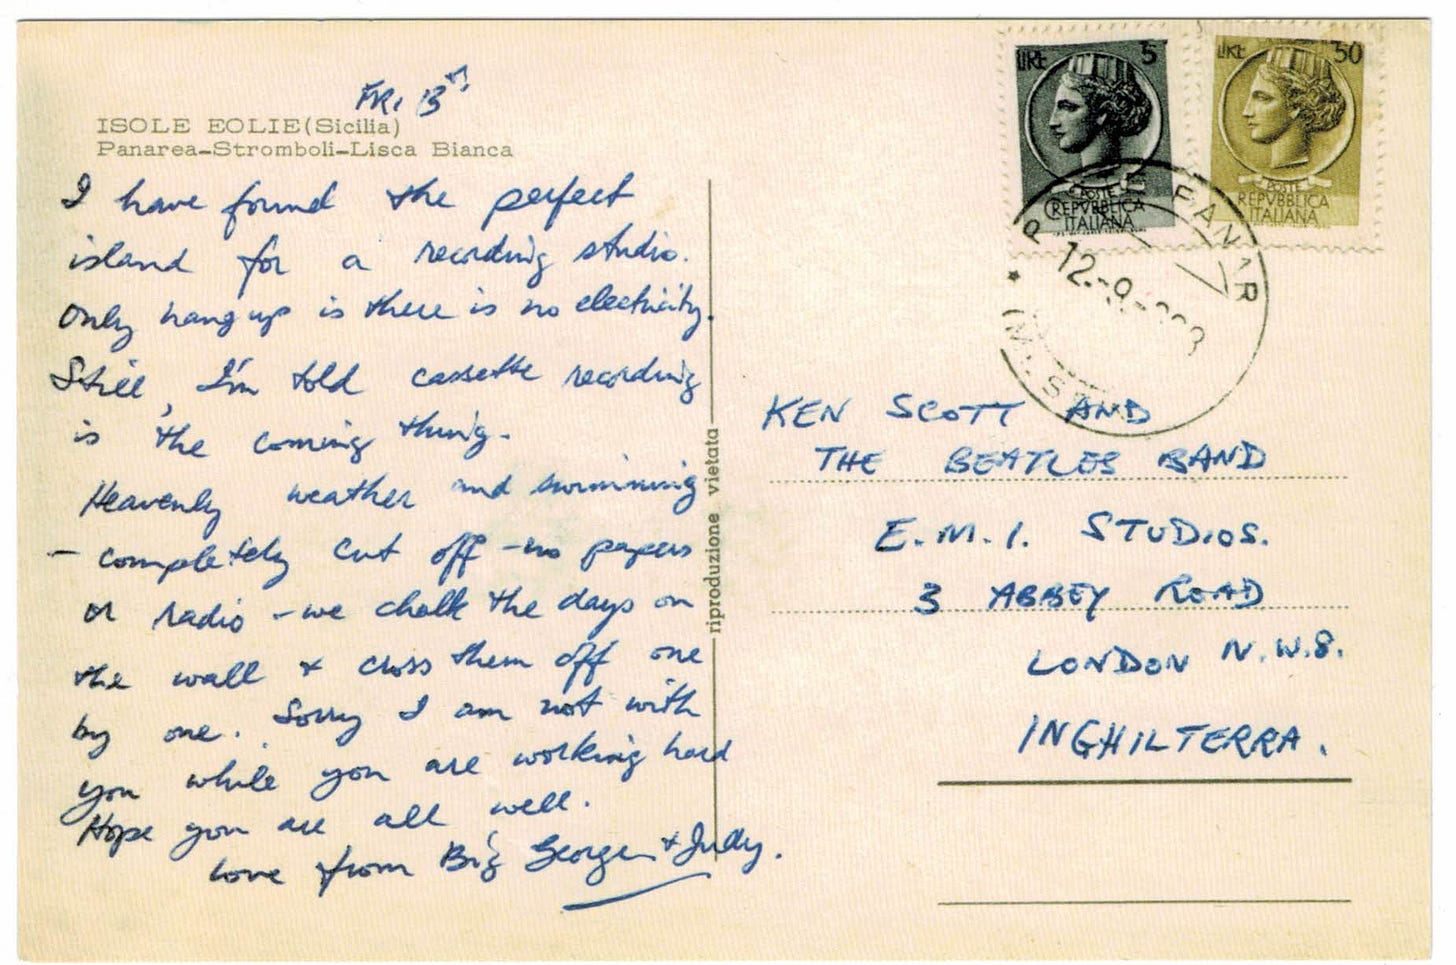 FRI 13th
ISOLE EOLIE (Sicilia)
Panarea-Stromboli-Lisca Bianca
I have found the perfect
island for a recording studio.
Only hang up is there is no electricity.
Still, I'm told cassette recording
is the coming thing.
Heavenly weather and swimming
- completely cut off - no papers
or radio - we chalk the days on
the wall + cross them off one
by one. Sorry I am not with
you while you are working hard
Hope you are all well.
Love from Big George + Judy.
riproduzione vietata
LIRE 5
POSTE
REPVBBLICA
ITALIANA
LIRE 50
POSTE
REPVBBLICA
ITALIANA
12.-9-
KEN SCOTT AND
THE BEATLES BAND
E.M.I. STUDIOS.
3 ABBEY ROAD
LONDON N.W.8.
INGHILTERRA.